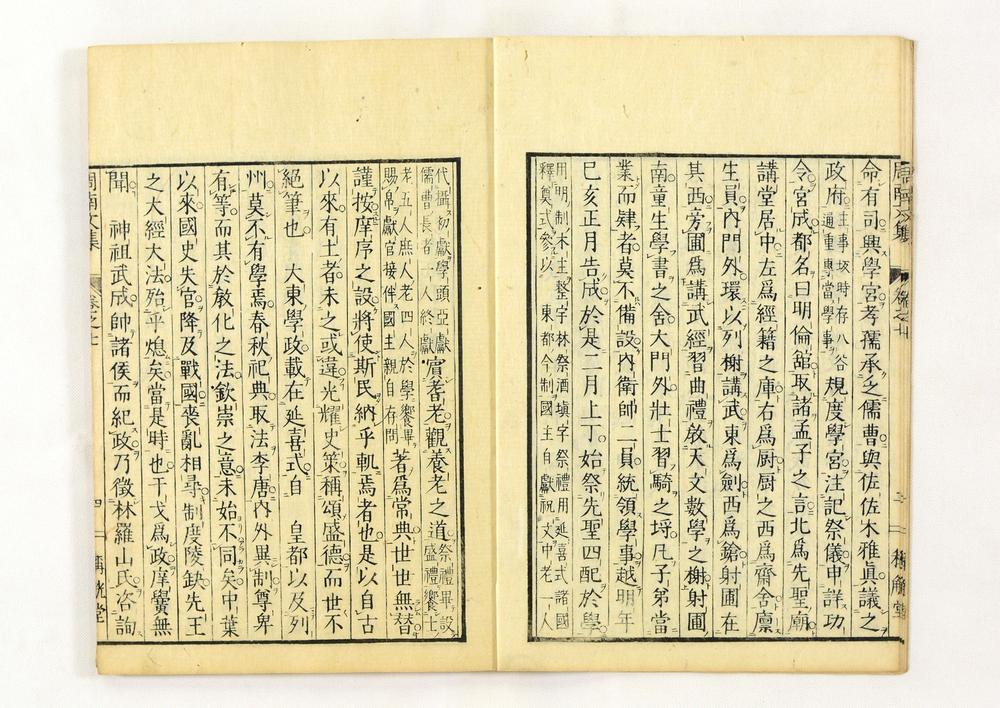 命有司興學宮孝孺承乏儒曹與佐佐木雅眞議之
政府主事坂時存八谷通重專當學事規度學宮注記祭儀申詳功
令宮成都名曰明倫舘取諸孟子之言北爲先聖廟
講堂居中左爲經籍之庫右爲厨厨之西爲齋舍廪
生員內門外環以列榭講武東爲劍西爲鎗射圃在
其西旁圃爲講武經習曲禮啟天文數學之榭射圃
南童生學書之舍大門外壯士習騎之埒凡子弟當
業而肄者莫不備設內衛帥二員統領學事越明年
己亥正月告成於是二月上丁始祭先聖四配於學
用明制木主整宇林祭酒塡字祭禮用延喜式諸國
釋奠式參以東都今制國主自獻祝文中老一人
代攝初獻學頭亞獻儒曹長者一人終獻賓耆老觀養老之道祭禮畢設盛禮饗士
老五人庶人老四人於學饗畢賜帛獻官接伴國主親自存問著爲常典世世無替
謹按庠序之設將使斯民納乎軌焉者也是以自古
以來有土者未之或違光耀史策稱頌盛德而世不
絕筆也 大東學政載在延喜式自 皇都以及列
州莫不有學焉春秋祀典取法李唐內外異制尊卑
有等而其於敎化之法欽崇之意未始不同矣中葉
以來國史失官降及戰國喪亂相尋制度陵缺先王
之大經大法殆乎熄矣當是時也干戈爲政庠黌無
聞 神祖武成帥諸侯而紀政乃徵林羅山氏咨詢
周南文集
卷之七
四